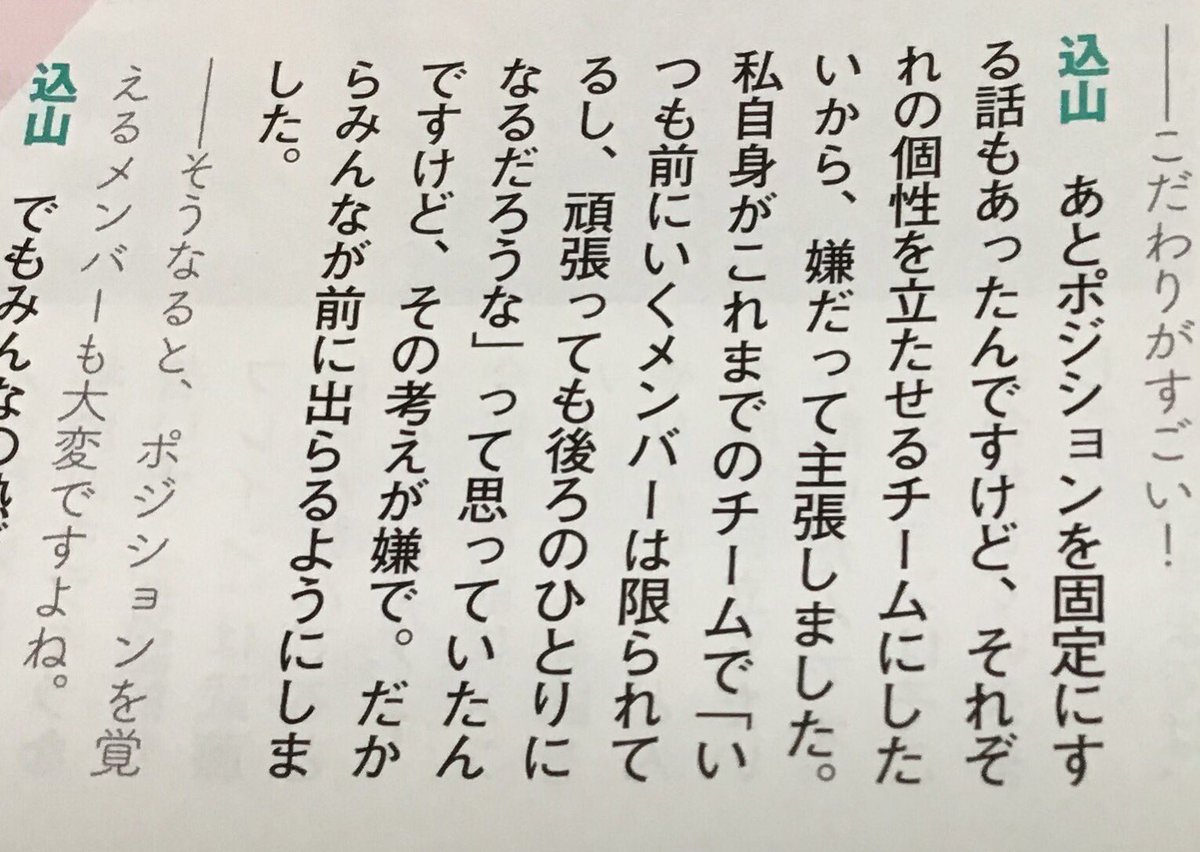 ――こだわりがすごい！
込山　あとポジションを固定にす
る話もあったんですけど、それぞ
れの個性を立たせるチームにした
いから、嫌だって主張しました。
私自身がこれまでのチームで「い
つも前にいくメンバーは限られて
るし、頑張っても後ろのひとりに
なるだろうな」って思っていたん
ですけど、その考えが嫌で。だか
らみんなが前に出らるようにしま
した。
――そうなると、ポジションを覚
えるメンバーも大変ですよね。
込山　でもみんなの